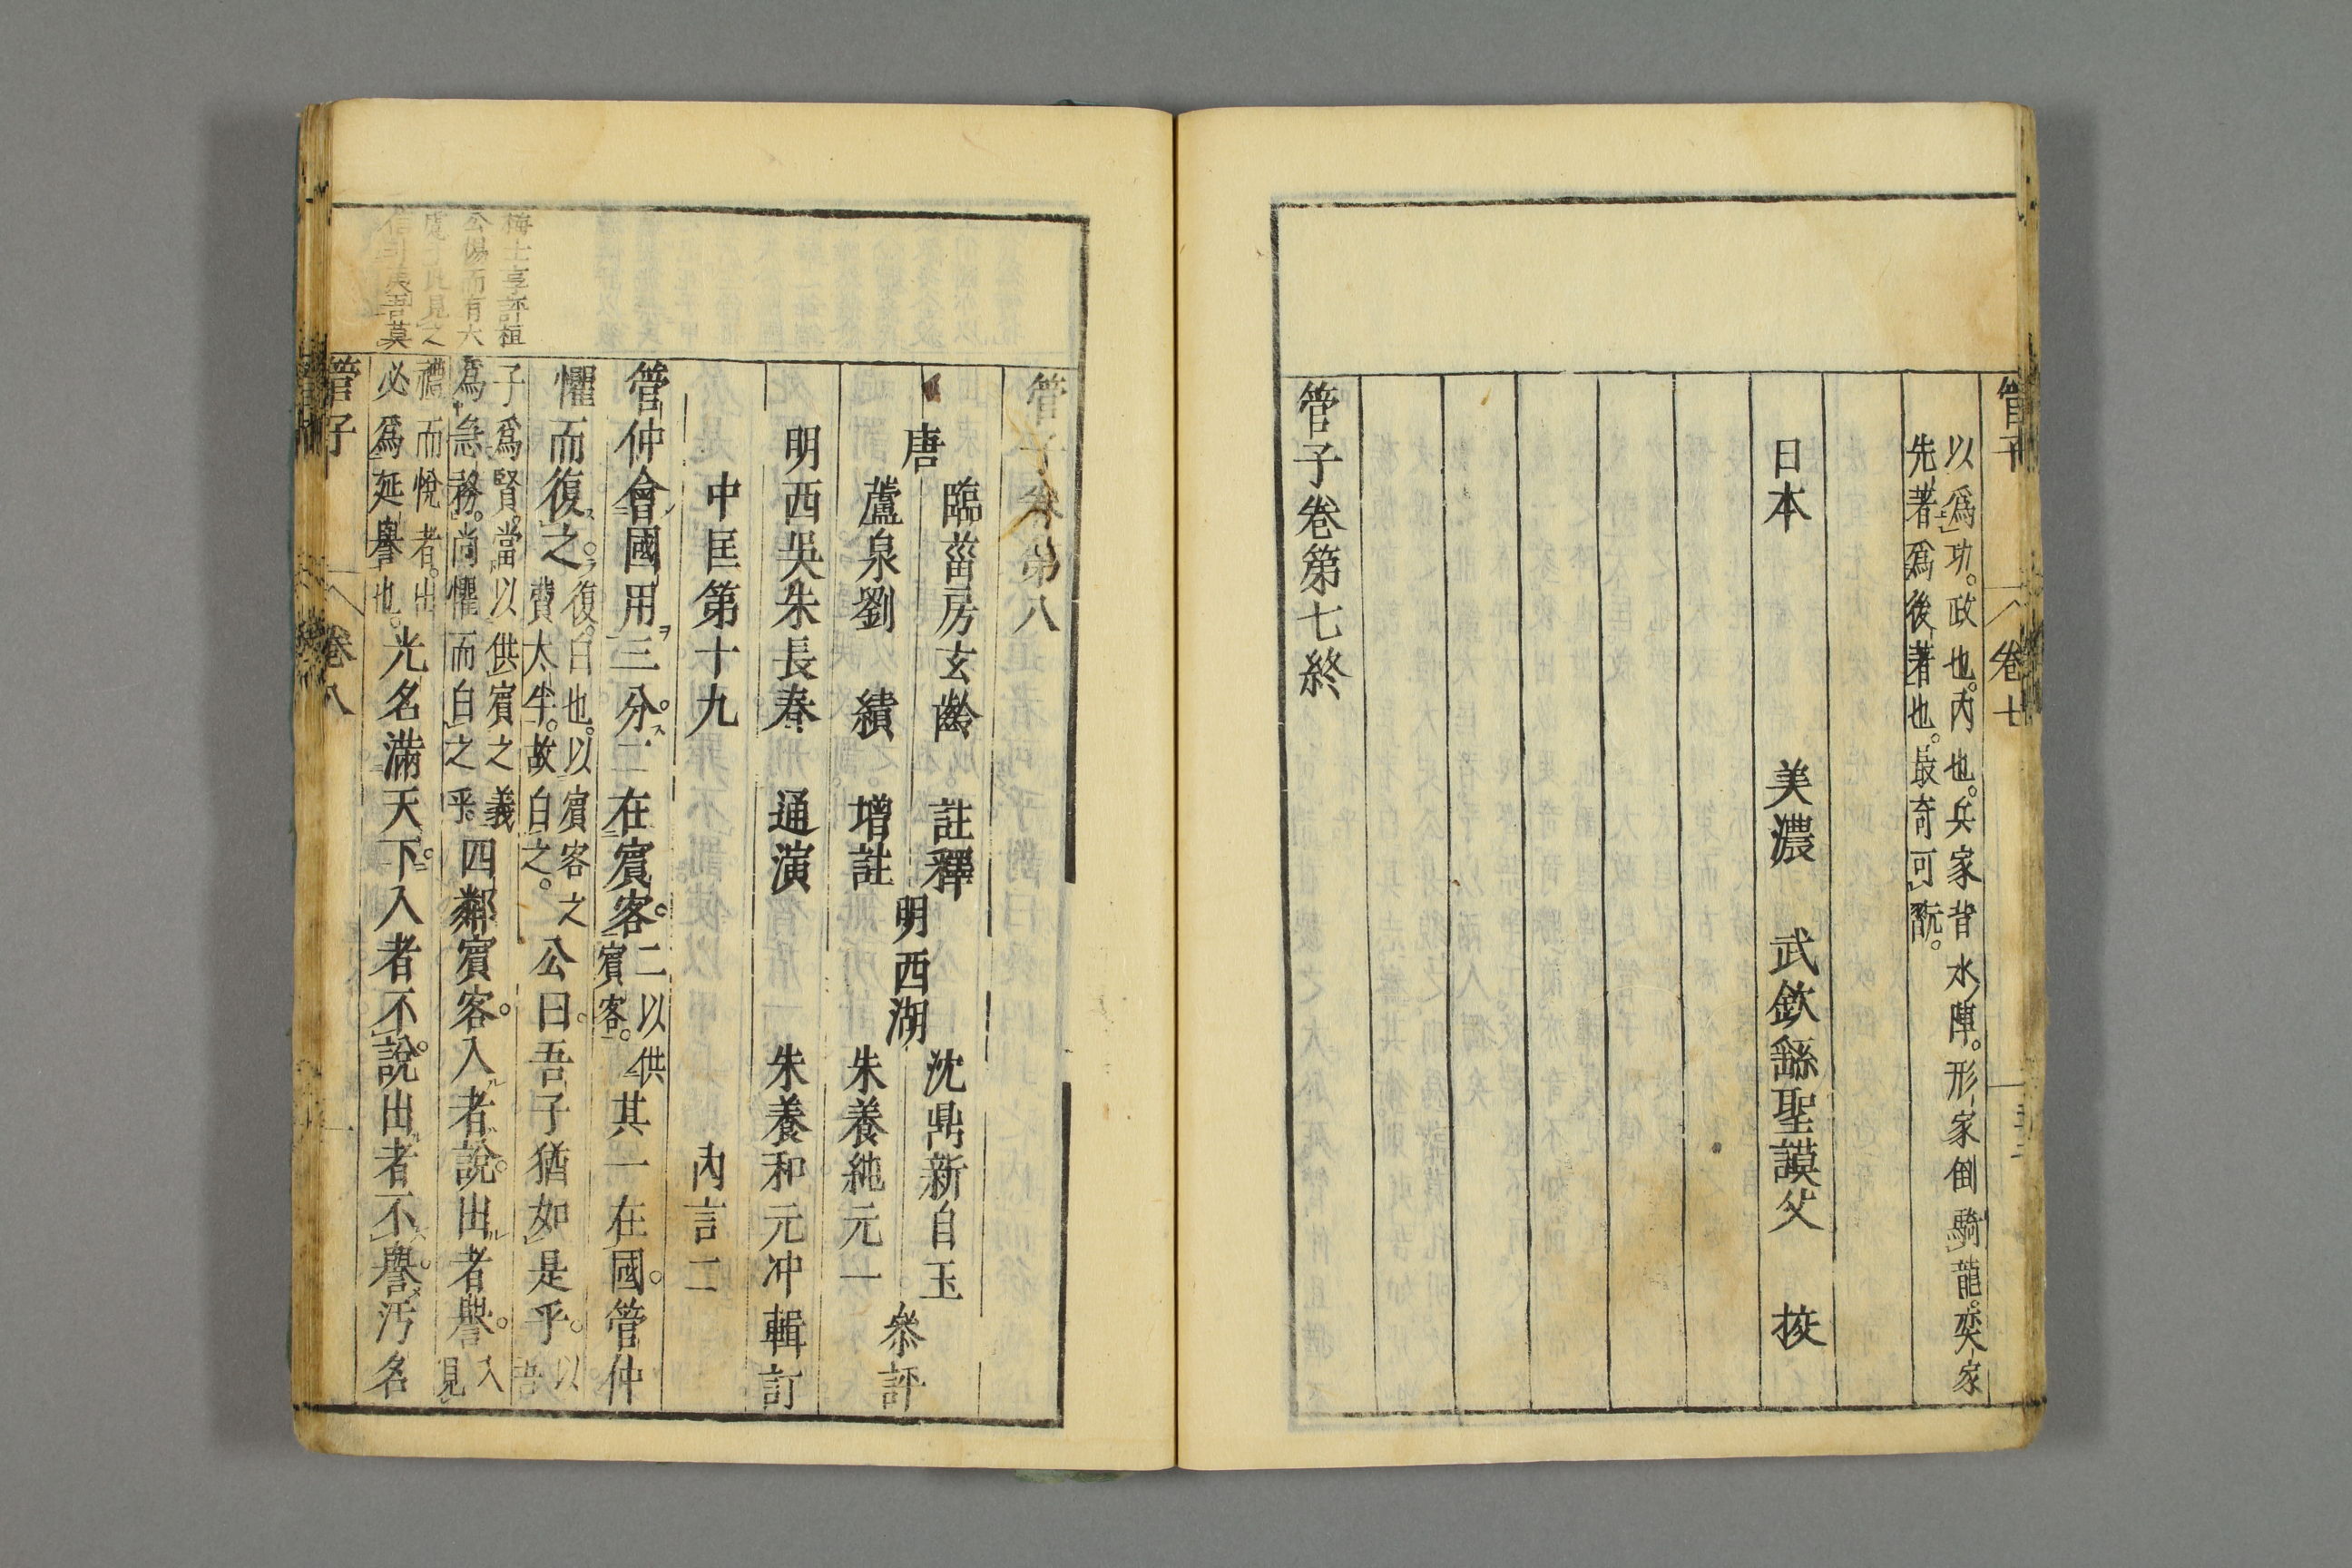 管子
卷七
以爲功。政也。內也。兵家背水陣。形家倒騎龍。奕家
先著爲後著也。最奇可翫。
日本 美濃 武欽繇聖謨父 挍
管子卷第七終
管子卷第八
唐 臨菑房玄齡 註釋
蘆泉劉 績 增註
明西湖 沈鼎新自玉
朱養純元一 叅評
明西吳朱長春 通演
朱養和元冲輯訂
中匡第十九 內言二
管仲會國用三分。二在賓客。二以供賓客。其一在國。管仲
懼而復之。復。白也。以賓客之費太半。故白之。公曰。吾子猶如是乎。以吾
子爲賢。當以供賓之義爲急務。尚懼而白之乎。四鄰賓客。入者說。出者譽。入見
禮而悅者。出必爲延譽也。光名滿天下。入者不說。出者不譽。汚名
梅士享評桓
公傷而有大
處于此見之
信到夷吾莫
管子
卷八
一